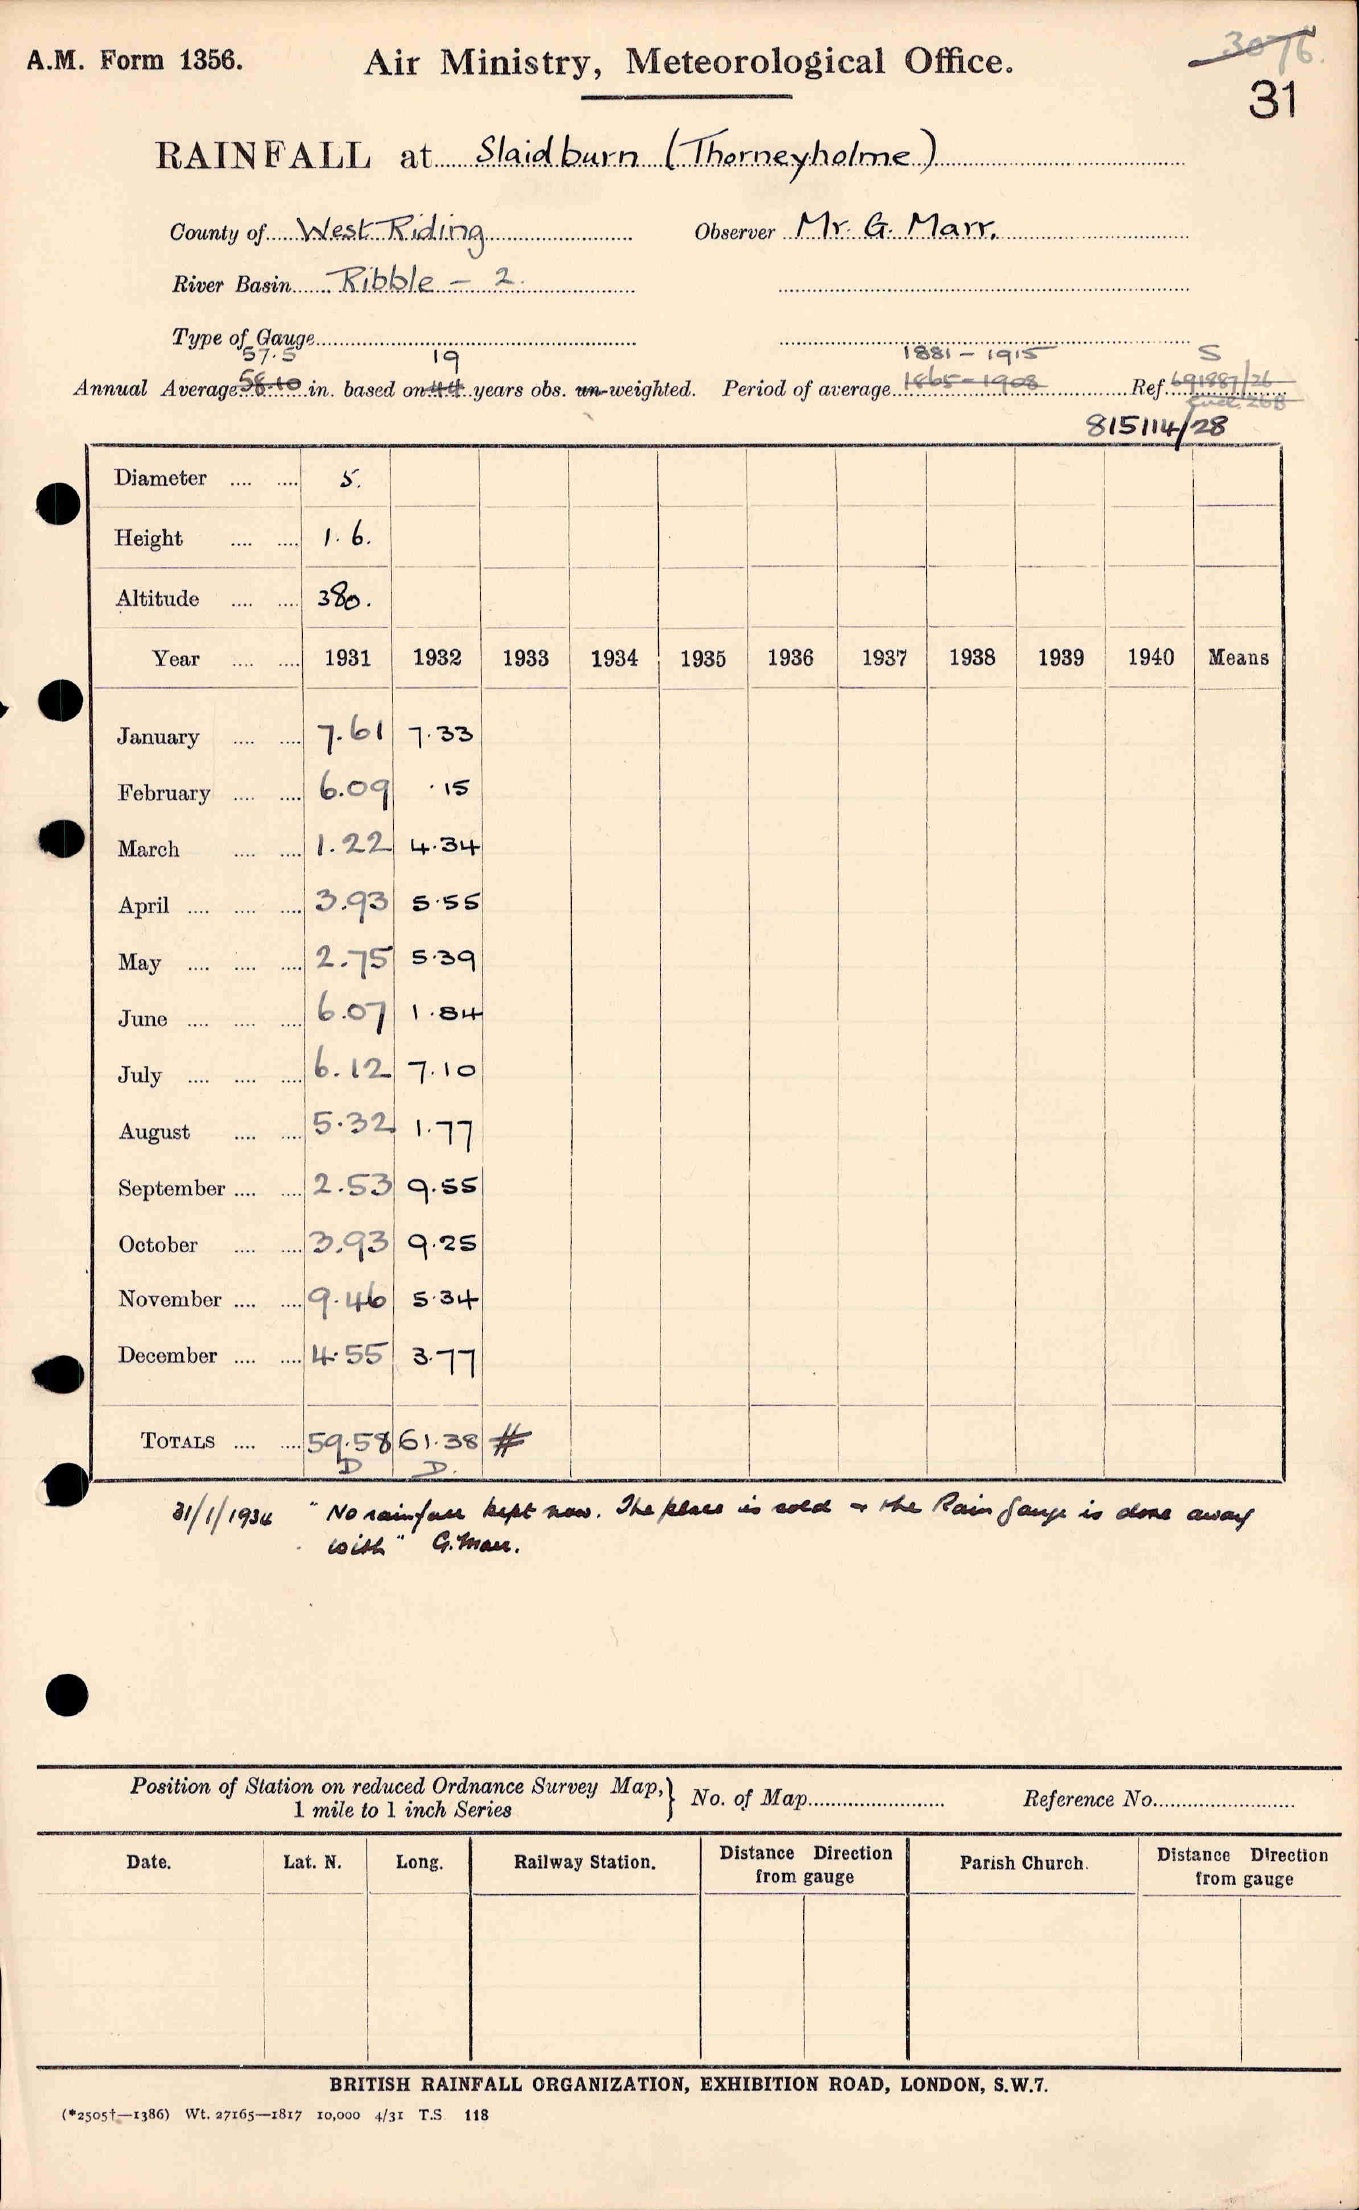 3076.
A.M. Form 1356. Air Ministry, Meteorological Office.
31
RAINFALL at Slaidburn (Thorneyholme)
County of West Riding Observer Mr. G. Marr.
River Basin Ribble - 2.
Type of Gauge
57.5 19 1881 - 1915 S
Annual Average 58.10 in. based on 44 years obs. un-weighted. Period of average 1865-1908 Ref. 691887/26
815114/28
Diameter .... .... 5.
Height .... .... 1.6.
Altitude .... .... 380.
Year .... .... 1931 1932 1933 1934 1935 1936 1937 1938 1939 1940 Means
January .... .... 7.61 7.33
February .... .... 6.09 .15
March .... .... 1.22 4.34
April .... .... .... 3.93 5.55
May .... .... .... 2.75 5.39
June .... .... .... 6.07 1.84
July .... .... .... 6.12 7.10
August .... .... 5.32 1.77
September .... .... 2.53 9.55
October .... .... 3.93 9.25
November .... .... 9.46 5.34
December .... .... 4.55 3.77
TOTALS .... .... 59.58 61.38 #
D D.
31/1/1934 "No rainfall kept now. The place is sold & the Rain Gauge is done away
with" G. Marr.
Position of Station on reduced Ordnance Survey Map, } No. of Map Reference No.
1 mile to 1 inch Series
Date. Lat. N. Long. Railway Station. Distance Direction from gauge Parish Church. Distance Direction from gauge
BRITISH RAINFALL ORGANIZATION, EXHIBITION ROAD, LONDON, S.W.7.
(*2505†—1386) Wt. 27165—1817 10,000 4/31 T.S. 118